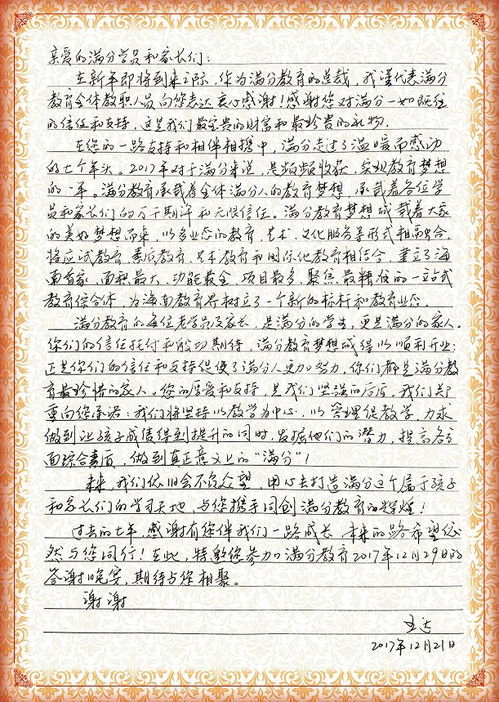 亲爱的满分学员和家长们：
在新年即将到来之际，作为满分教育的总裁，我谨代表满分
教育全体教职人员向您表达衷心感谢！感谢您对满分一如既往
的信任和支持，这是我们最宝贵的财富和最珍贵的礼物。
在您的一路支持和相伴相携中，满分走过了温暖而感动
的七个年头。2017年对于满分来说，是频频收获、实现教育梦想
的一年。满分教育承载着全体满分人的教育梦想，承载着各位学
员和家长们的万千期许和无限信任。满分教育梦想城载着大家
的美好梦想而来，以多业态的教育、艺术、文化服务等形式相融合，
将应试教育、素质教育、艺术教育和国际化教育相结合，建立了海
南首家、面积最大、功能最全、项目最多、聚焦最精准的一站式
教育综合体，为海南教育界树立了一个新的标杆和教育业态。
满分教育的每位老学员及家长，是满分的学生，更是满分的家人。
你们的信任托付和殷切期待，满分教育梦想城得以顺利开业；
正是你们的信任和支持促使了满分人更加努力，你们都是满分教
育最珍惜的家人。您的厚爱和支持，是我们坚强的后盾，我们郑
重向您承诺：我们将坚持以教学为中心，以管理促教学，力求
做到让孩子成绩得到提升的同时，发掘他们的潜力，提高各方
面综合素质，做到真正意义上的“满分”！
未来，我们依旧会不负众望，用心去打造满分这个属于孩子
和家长们的学习天地，与您携手同创满分教育的辉煌！
过去的七年，感谢有您伴我们一路成长，未来的路希望依
然与您同行！在此，特邀您参加满分教育2017年12月29日的
答谢晚宴，期待与您相聚。
谢谢
2017年12月21日